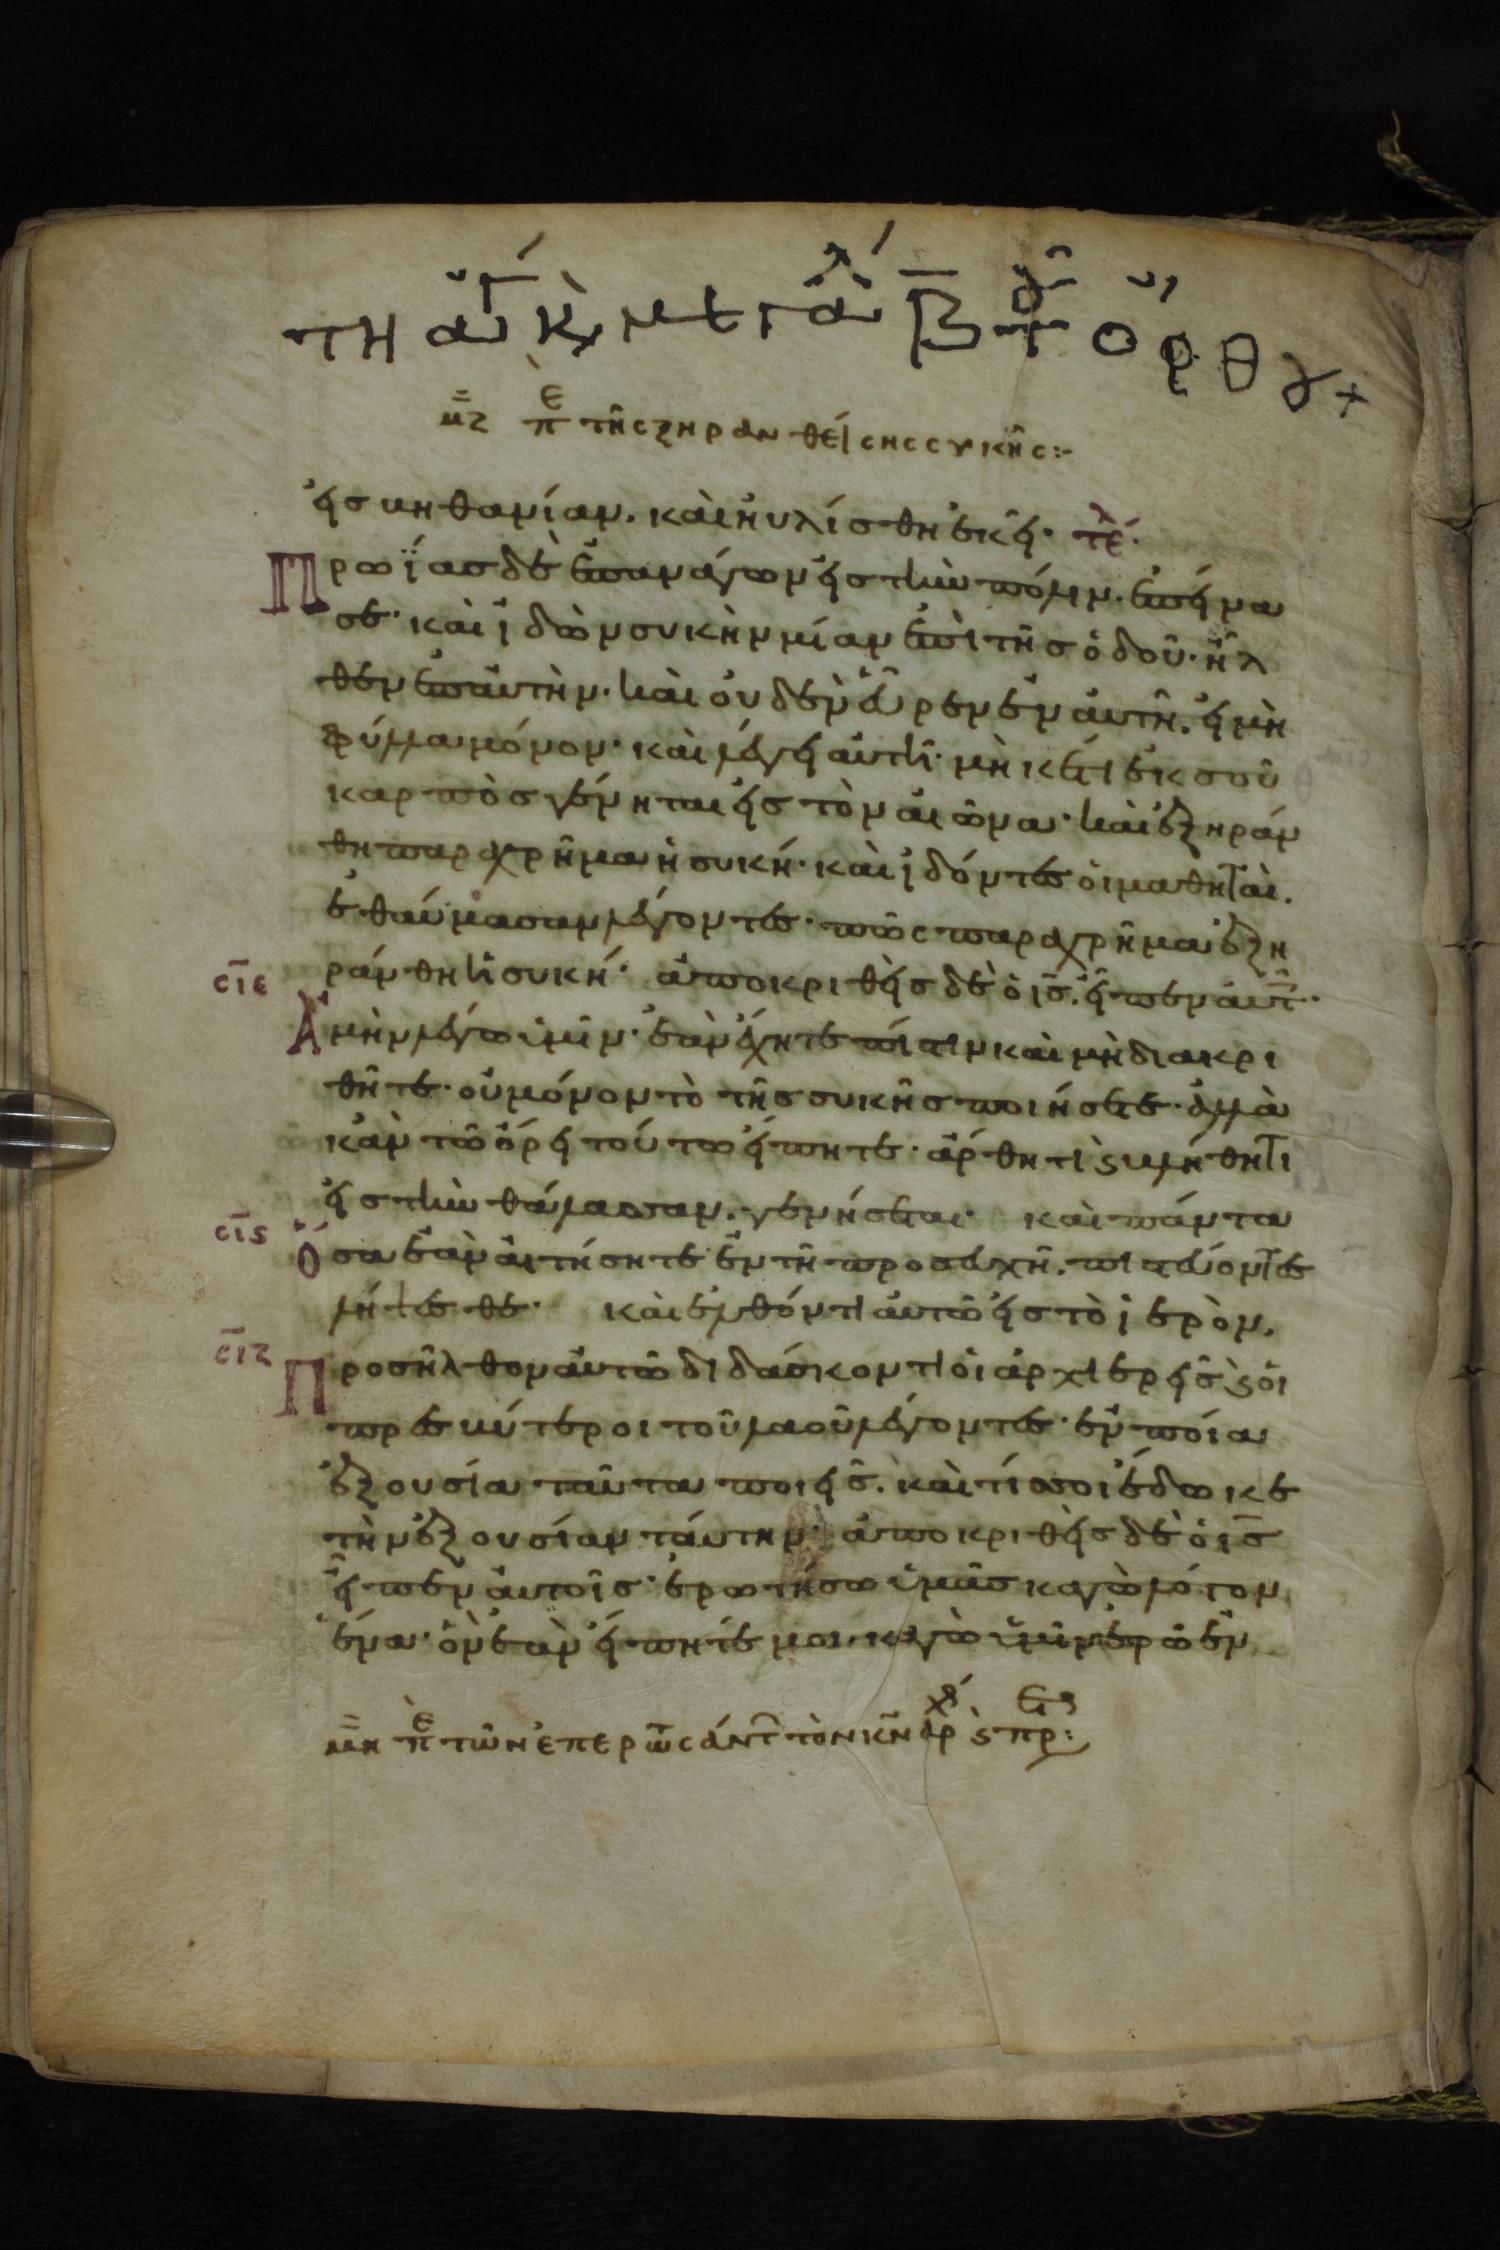 τη αγ κ μεγα β τ ορθ
μζ π̅ε τῆς ξηρανθείσης συκῆς:-
εἰς βηθανίαν. καὶ ηὐλίσθη ἐκεῖ· τέλ
Πρωΐας δὲ ἐπανάγων εἰς τὴν πόλιν. ἐπείνα
σε· καὶ ἰδὼν συκὴν μίαν ἐπὶ τῆς ὁδοῦ· ἦλ
θεν ἐπ αὐτὴν· καὶ οὐδὲν εὗρεν ἐν αὐτῆ. εἰ μὴ
φύλλα μόνον· καὶ λέγει αὐτῆ· μὴκέτι ἐκ σοῦ
καρπὸς γένηται εἰς τὸν αἰῶνα· καὶ ἐξηράν
θη παραχρῆμα ἡ συκή· καὶ ἰδόντες οἱ μαθηταὶ.
ἐθαύμασαν λέγοντες· πῶς παραχρῆμα ἐξη
σ̅ι̅ε̅ ράνθη ἡ συκή· ἀποκριθεὶς δὲ ὁ ι̅ς̅. εἶπεν αὐτ·
Ἀμὴν λέγω ὑμῖν· ἐὰν ἔχητε πίστιν καὶ μὴ διακρι
θῆτε· οὐ μόνον τὸ τῆς συκῆς ποιήσετε· ἀλλὰ
κἂν τῶ ὄρει τούτω εἴπητε· ἄρθητι ϗ βλήθητι
εἰς τὴν θάλασσαν. γενήσεται· καὶ πάντα
σ̅ι̅ς̅ ὅσα ἐὰν αἰτήσητε ἐν τῆ προσευχῆ. πιστεύοντες
λήψεσθε· καὶ ἐλθόντι αὐτῶ εἰς τὸ ἱερὸν.
σ̅ι̅ζ̅ Προσῆλθον αὐτῶ διδάσκοντι οἱ ἀρχιερεῖς ϗ οἱ
πρεσβύτεροι τοῦ λαοῦ λέγοντες· ἐν ποία
ἐξουσία ταῦτα ποιεῖς. καὶ τίς σοι ἔδωκε
τὴν ἐξουσίαν ταύτην· ἀποκριθεὶς δὲ ὁ ι̅ς̅
εἶπεν αὐτοῖς· ἐρωτήσω ὑμᾶς κἀγὼ λόγον
ἕνα· ὃν ἐὰν εἴπητέ μοι. κἀγὼ ὑμῖν ἐρῶ ἐν
μη π̅ε τῶν ἐπερωτ σάντ τὸν κ̅ν̅ ἀρχ ϗ πρ: